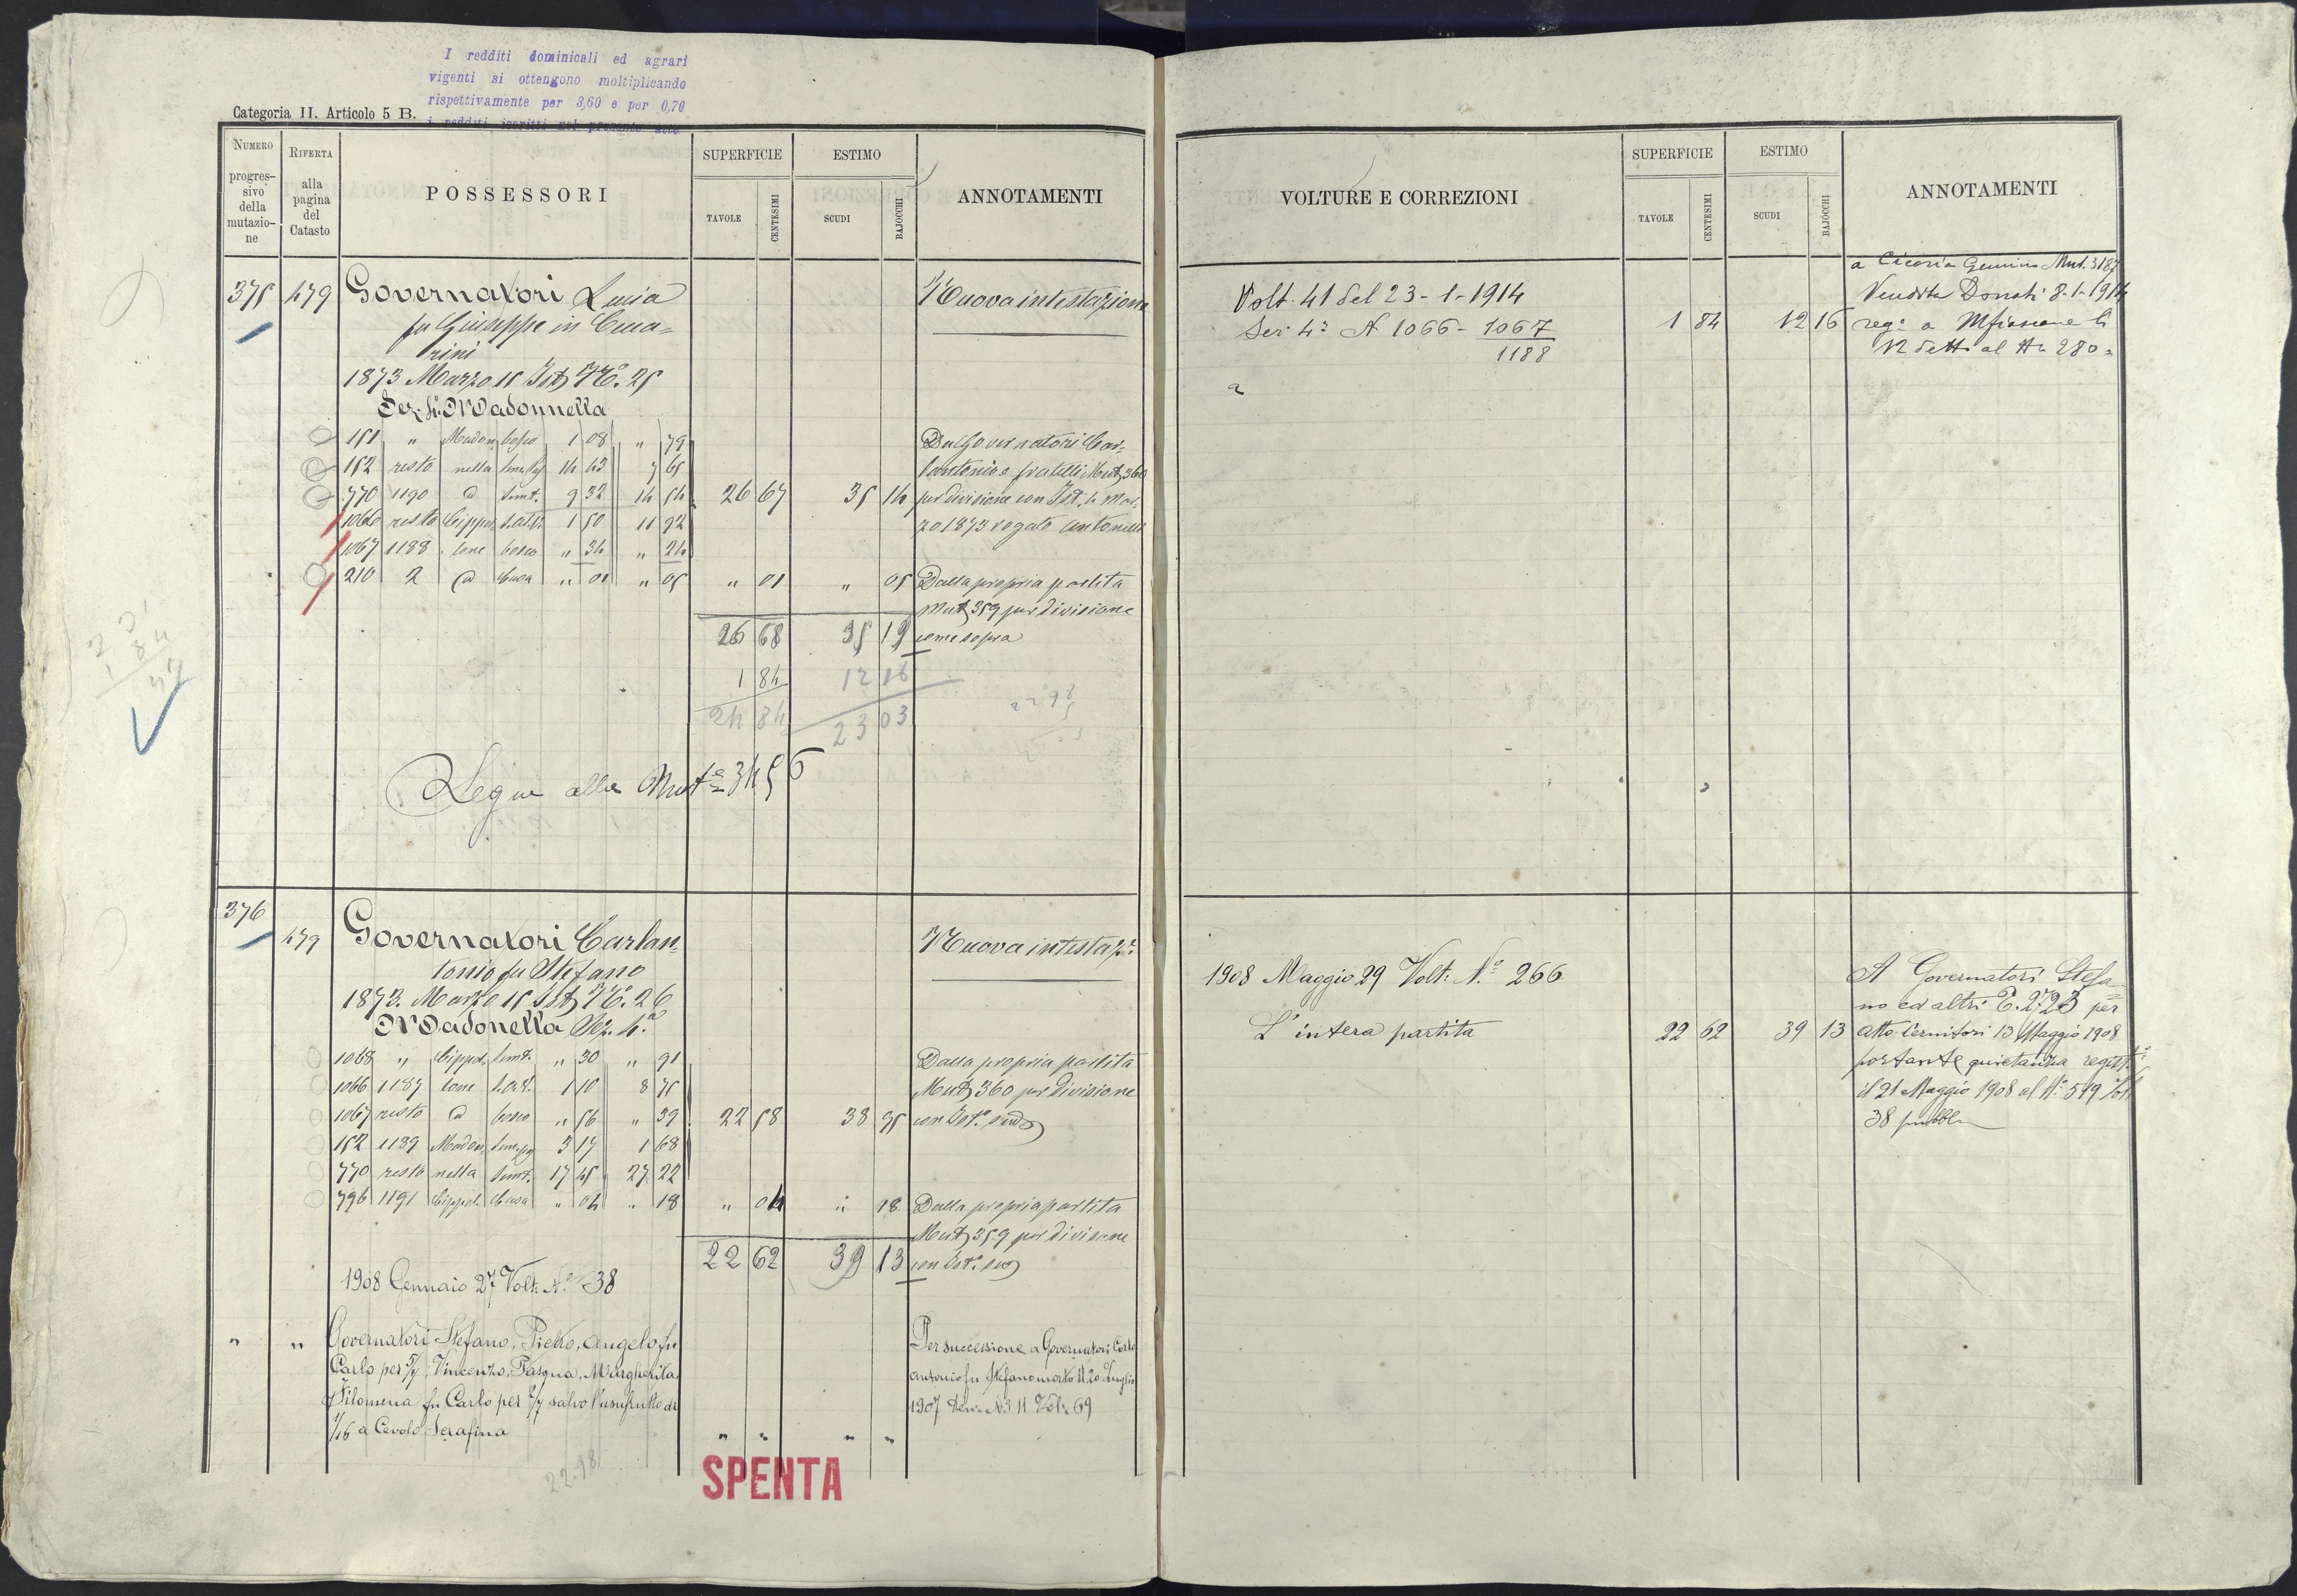 I redditi dominicali ed agrari
vigenti si ottengono moltiplicando
rispettivamente per 3,60 e per 0,70
i redditi iscritti nel presente atto
Categoria II. Articolo 5 B.
NUMERO progres- sivo della mutazio- ne
RIFERTA alla pagina del Catasto
POSSESSORI
SUPERFICIE
TAVOLE
CENTESIMI
ESTIMO
SCUDI
BAJOCCHI
ANNOTAMENTI
375 479 Governatori Lucia Nuova intestazione
fu Giuseppe in
rini
1873 Marzo 15 Ist N.o 25
Sez. 4. Madonnella
151 " Madon bosco 1 08 " 79 Da Governatori Car-
152 resto nella 14 43 7 65 lantonio e fratelli Mut 360
770 1190 d Semt. 9 32 14 54 26 67 35 14 per divisione con Ist. 4 Mar-
1066 resto Cippol 1 50 11 92 zo 1873 rogato Antonelli
1067 1188 lone bosco " 34 " 24
210 2 d Casa " 01 " 05 " 01 " 05 Dalla propria partita
Mut 359 per divisione
26 68 35 19 come sopra
1 84 12 16
24 84 23 03
Segue alla Mut.a 3456
376
479 Governatori Carlan- Nuova intestaz.e
tonio fu Stefano
1873. Marzo 15 Ist N.o 26
Madonella Sez. 4.a
1068 " Cippol Semt. " 30 " 91 Dalla propria partita
1066 1187 lone 1 10 8 75 Mut 360 per divisione
1067 resto d bosco " 56 " 39 22 58 38 95 con Ist.o sud
152 1189 Madon 3 17 1 68
770 resto nella Semt. 17 45 27 22
796 1191 Cippol. Casa " 04 " 18 " 04 " 18 Dalla propria partita
Mut 359 per divisione
22 62 39 13 con Ist.o sud
1908 Gennaio 27 Volt. N.o 38
" " Governatori Stefano, Pietro, Angelo fu Per successione a Governatori Carlo
Carlo per 5/7; Vincenzo, Pasqua, Margherita, Antonio fu Stefano morto il 20 Luglio
Filomena fu Carlo per 2/7 salvo l'usufrutto di 1907 Den. N.o 11 Vol. 69
1/16 a Cevolo Serafina " " " "
22.98
SPENTA
VOLTURE E CORREZIONI
SUPERFICIE
TAVOLE
CENTESIMI
ESTIMO
SCUDI
BAJOCCHI
ANNOTAMENTI
a Cicoria Gemino Mut. 3187
Volt. 41 del 23-1-1914 Vendita Donati 8-1-1914
Sez. 4a N 1066 - 1067 1 84 12 16 reg.o a Mfiascone li
1188 12 detto al N.o 280
a
1908 Maggio 29 Volt: N.o 266 A Governatori Stefa-
no ed altri P. 2723 per
L'intera partita 22 62 39 13 atto Cernitori 13 Maggio 1908
portante quietanza regist.o
il 21 Maggio 1908 al N.o 519
38